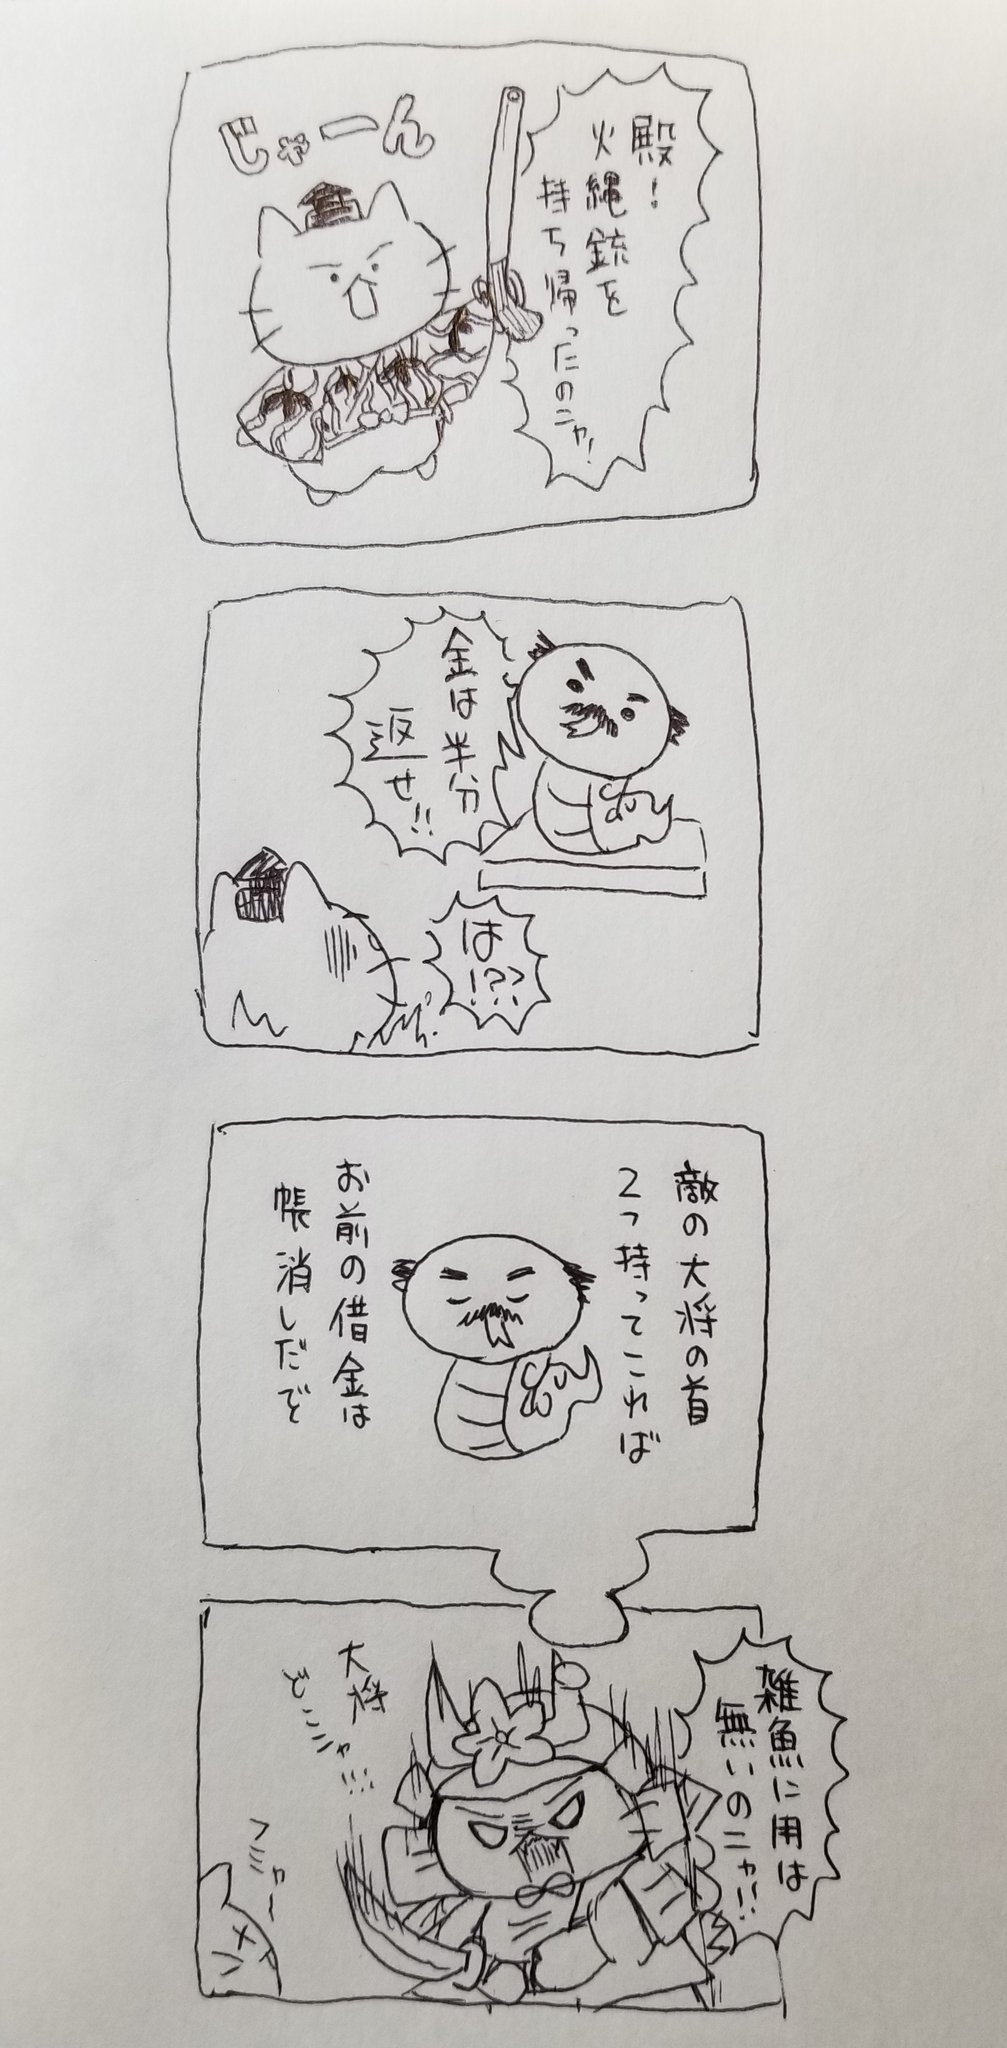 殿！
火縄銃を
持ち帰ったのニャ！
じゃーん
金は半分
返せ!!
は!??
敵の大将の首
2つ持ってこれば
お前の借金は
帳消しだぞ
雑魚に用は
無いのニャ!!
大将
どこニャ!!!
フミャ〜